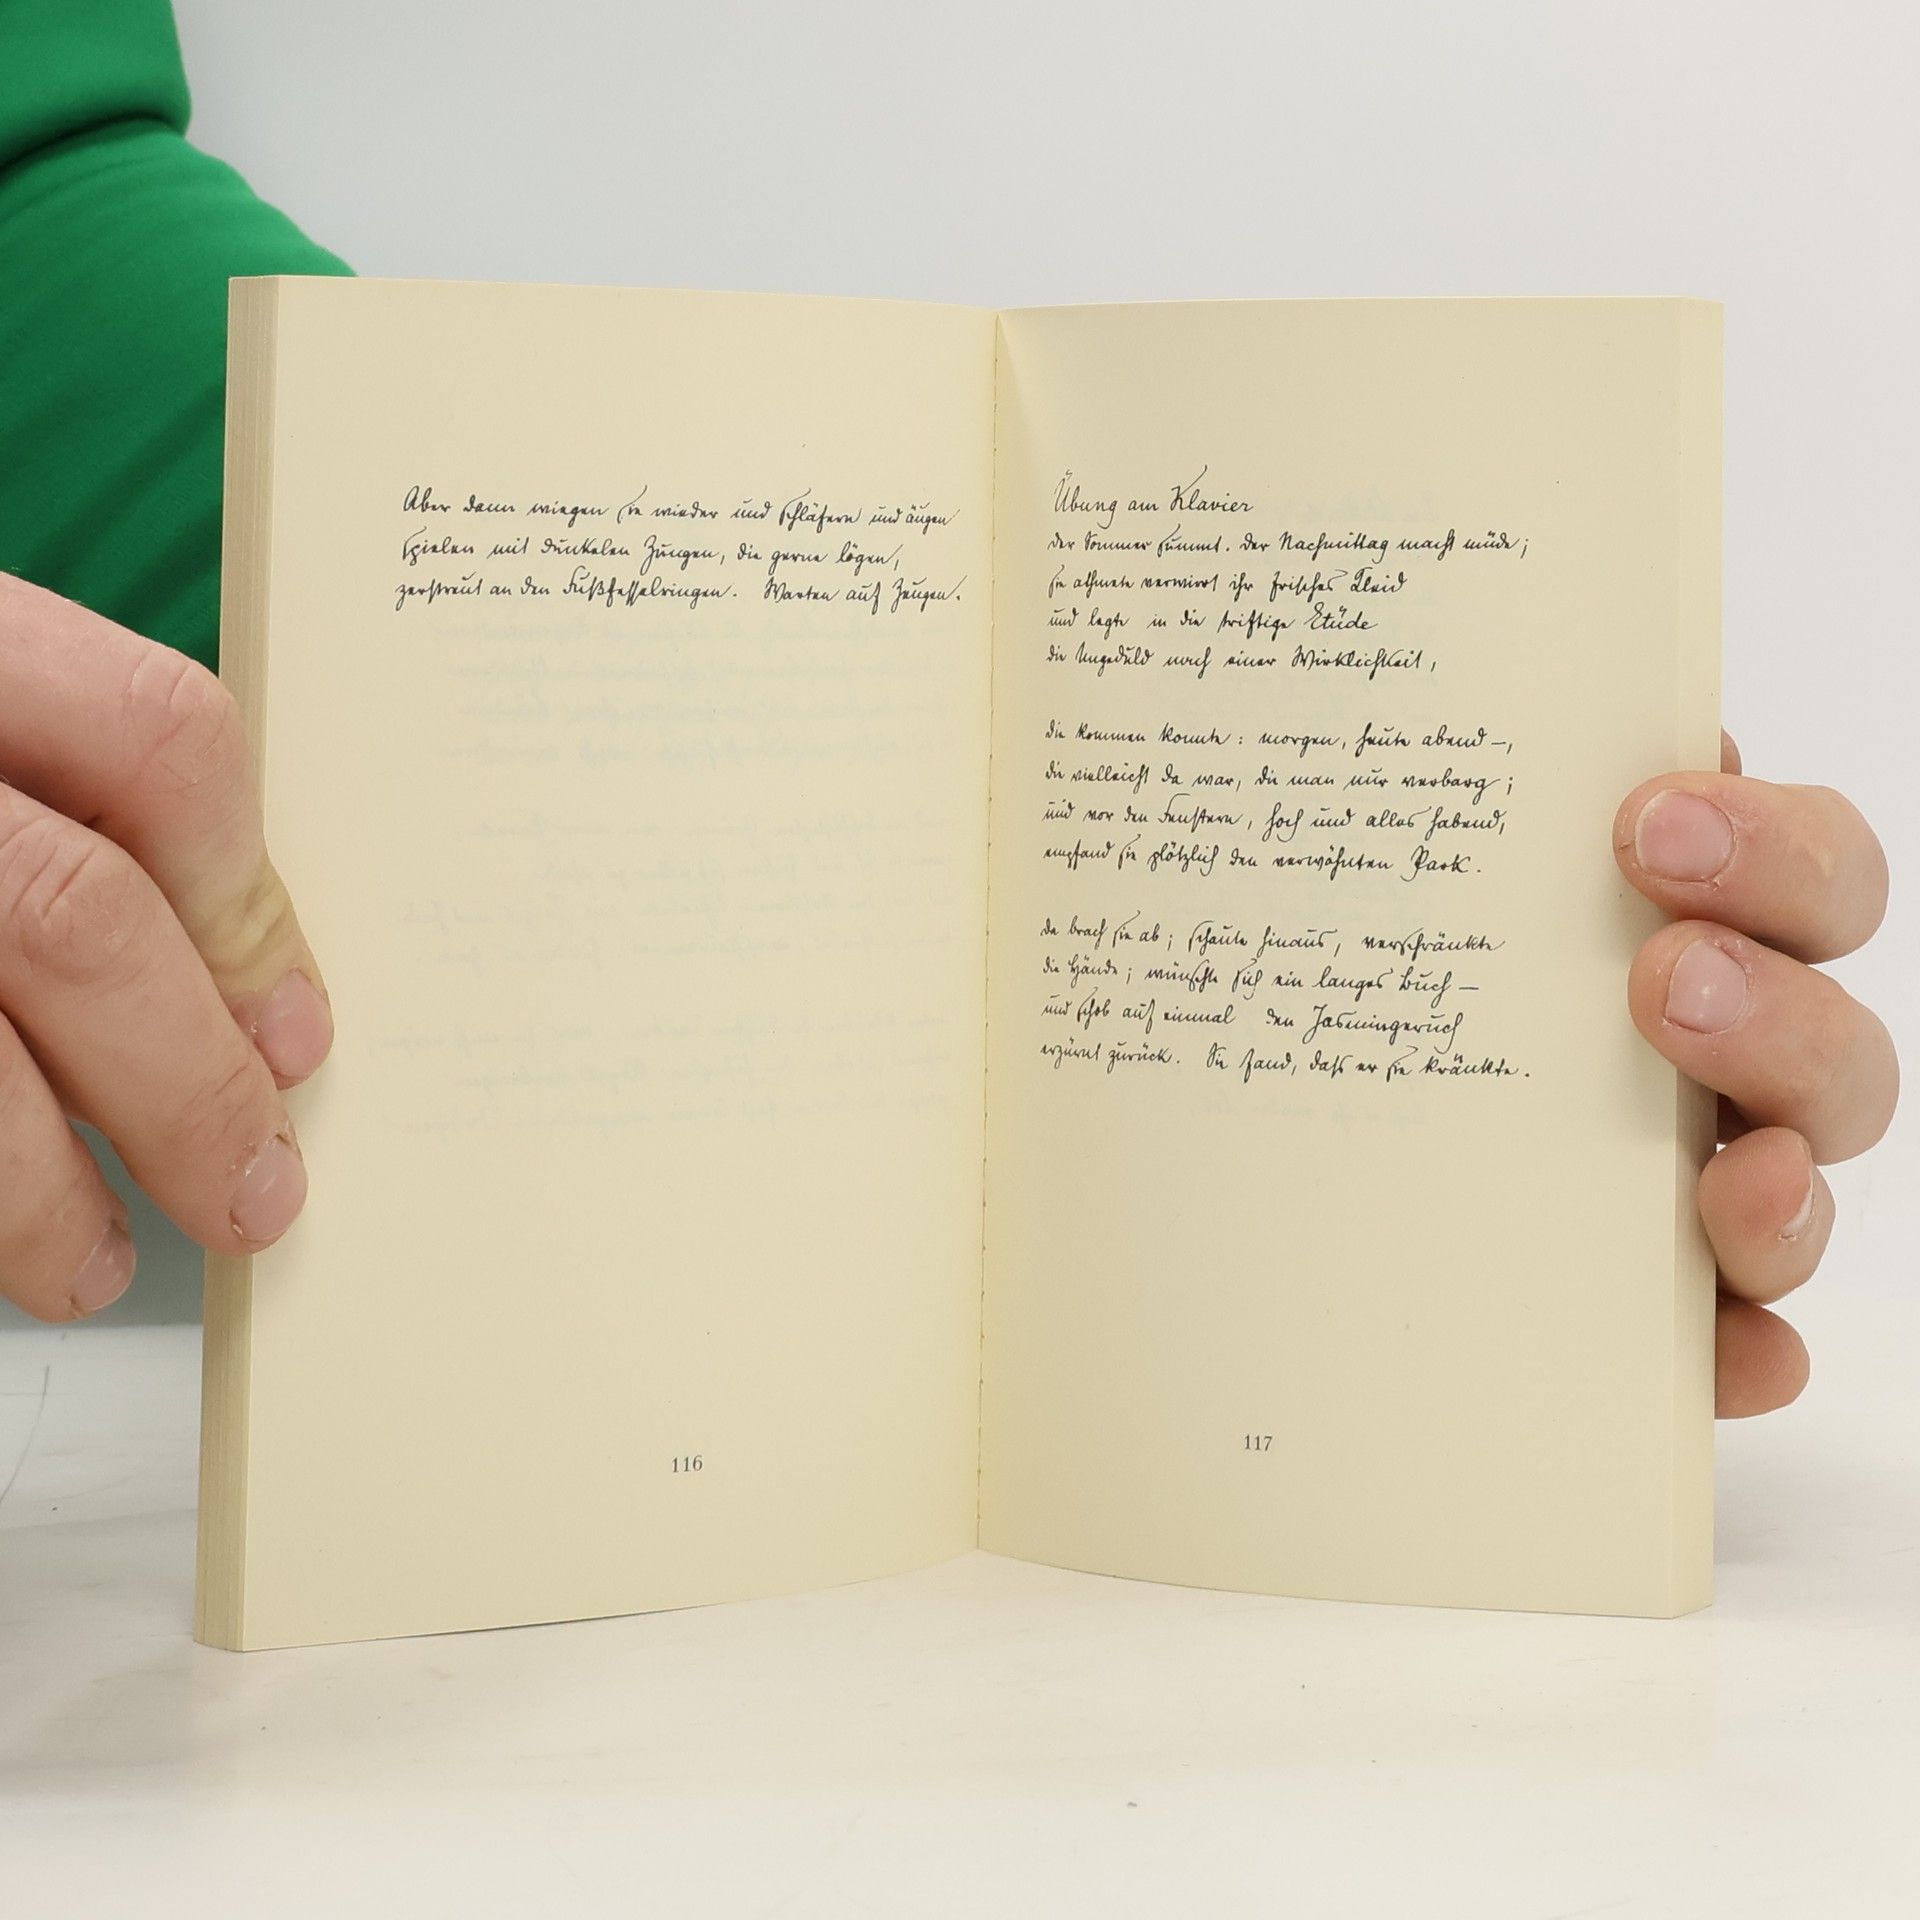 Aber dann wiegen sie wieder und schläfern und äugen
spielen mit dunkelen Zungen, die gerne lögen,
zerstreut an den Fußfesselringen. Warten auf Zeugen.
116
Übung am Klavier
der Sommer summt. der Nachmittag macht müde;
sie athmete verwirrt ihr frisches Kleid
und legte in die triftige Etüde
die Ungeduld nach einer Wirklichkeit,
die kommen konnte: morgen, heute abend—,
die vielleicht da war, die man nur verbarg;
und vor den Fenstern, hoch und alles habend,
empfand sie plötzlich den verwöhnten Park.
da brach sie ab; schaute hinaus, verschränkte
die Hände; wünschte sich ein langes Buch —
und schob auf einmal den Jasmingeruch
erzürnt zurück. Sie fand, dass er sie kränkte.
117